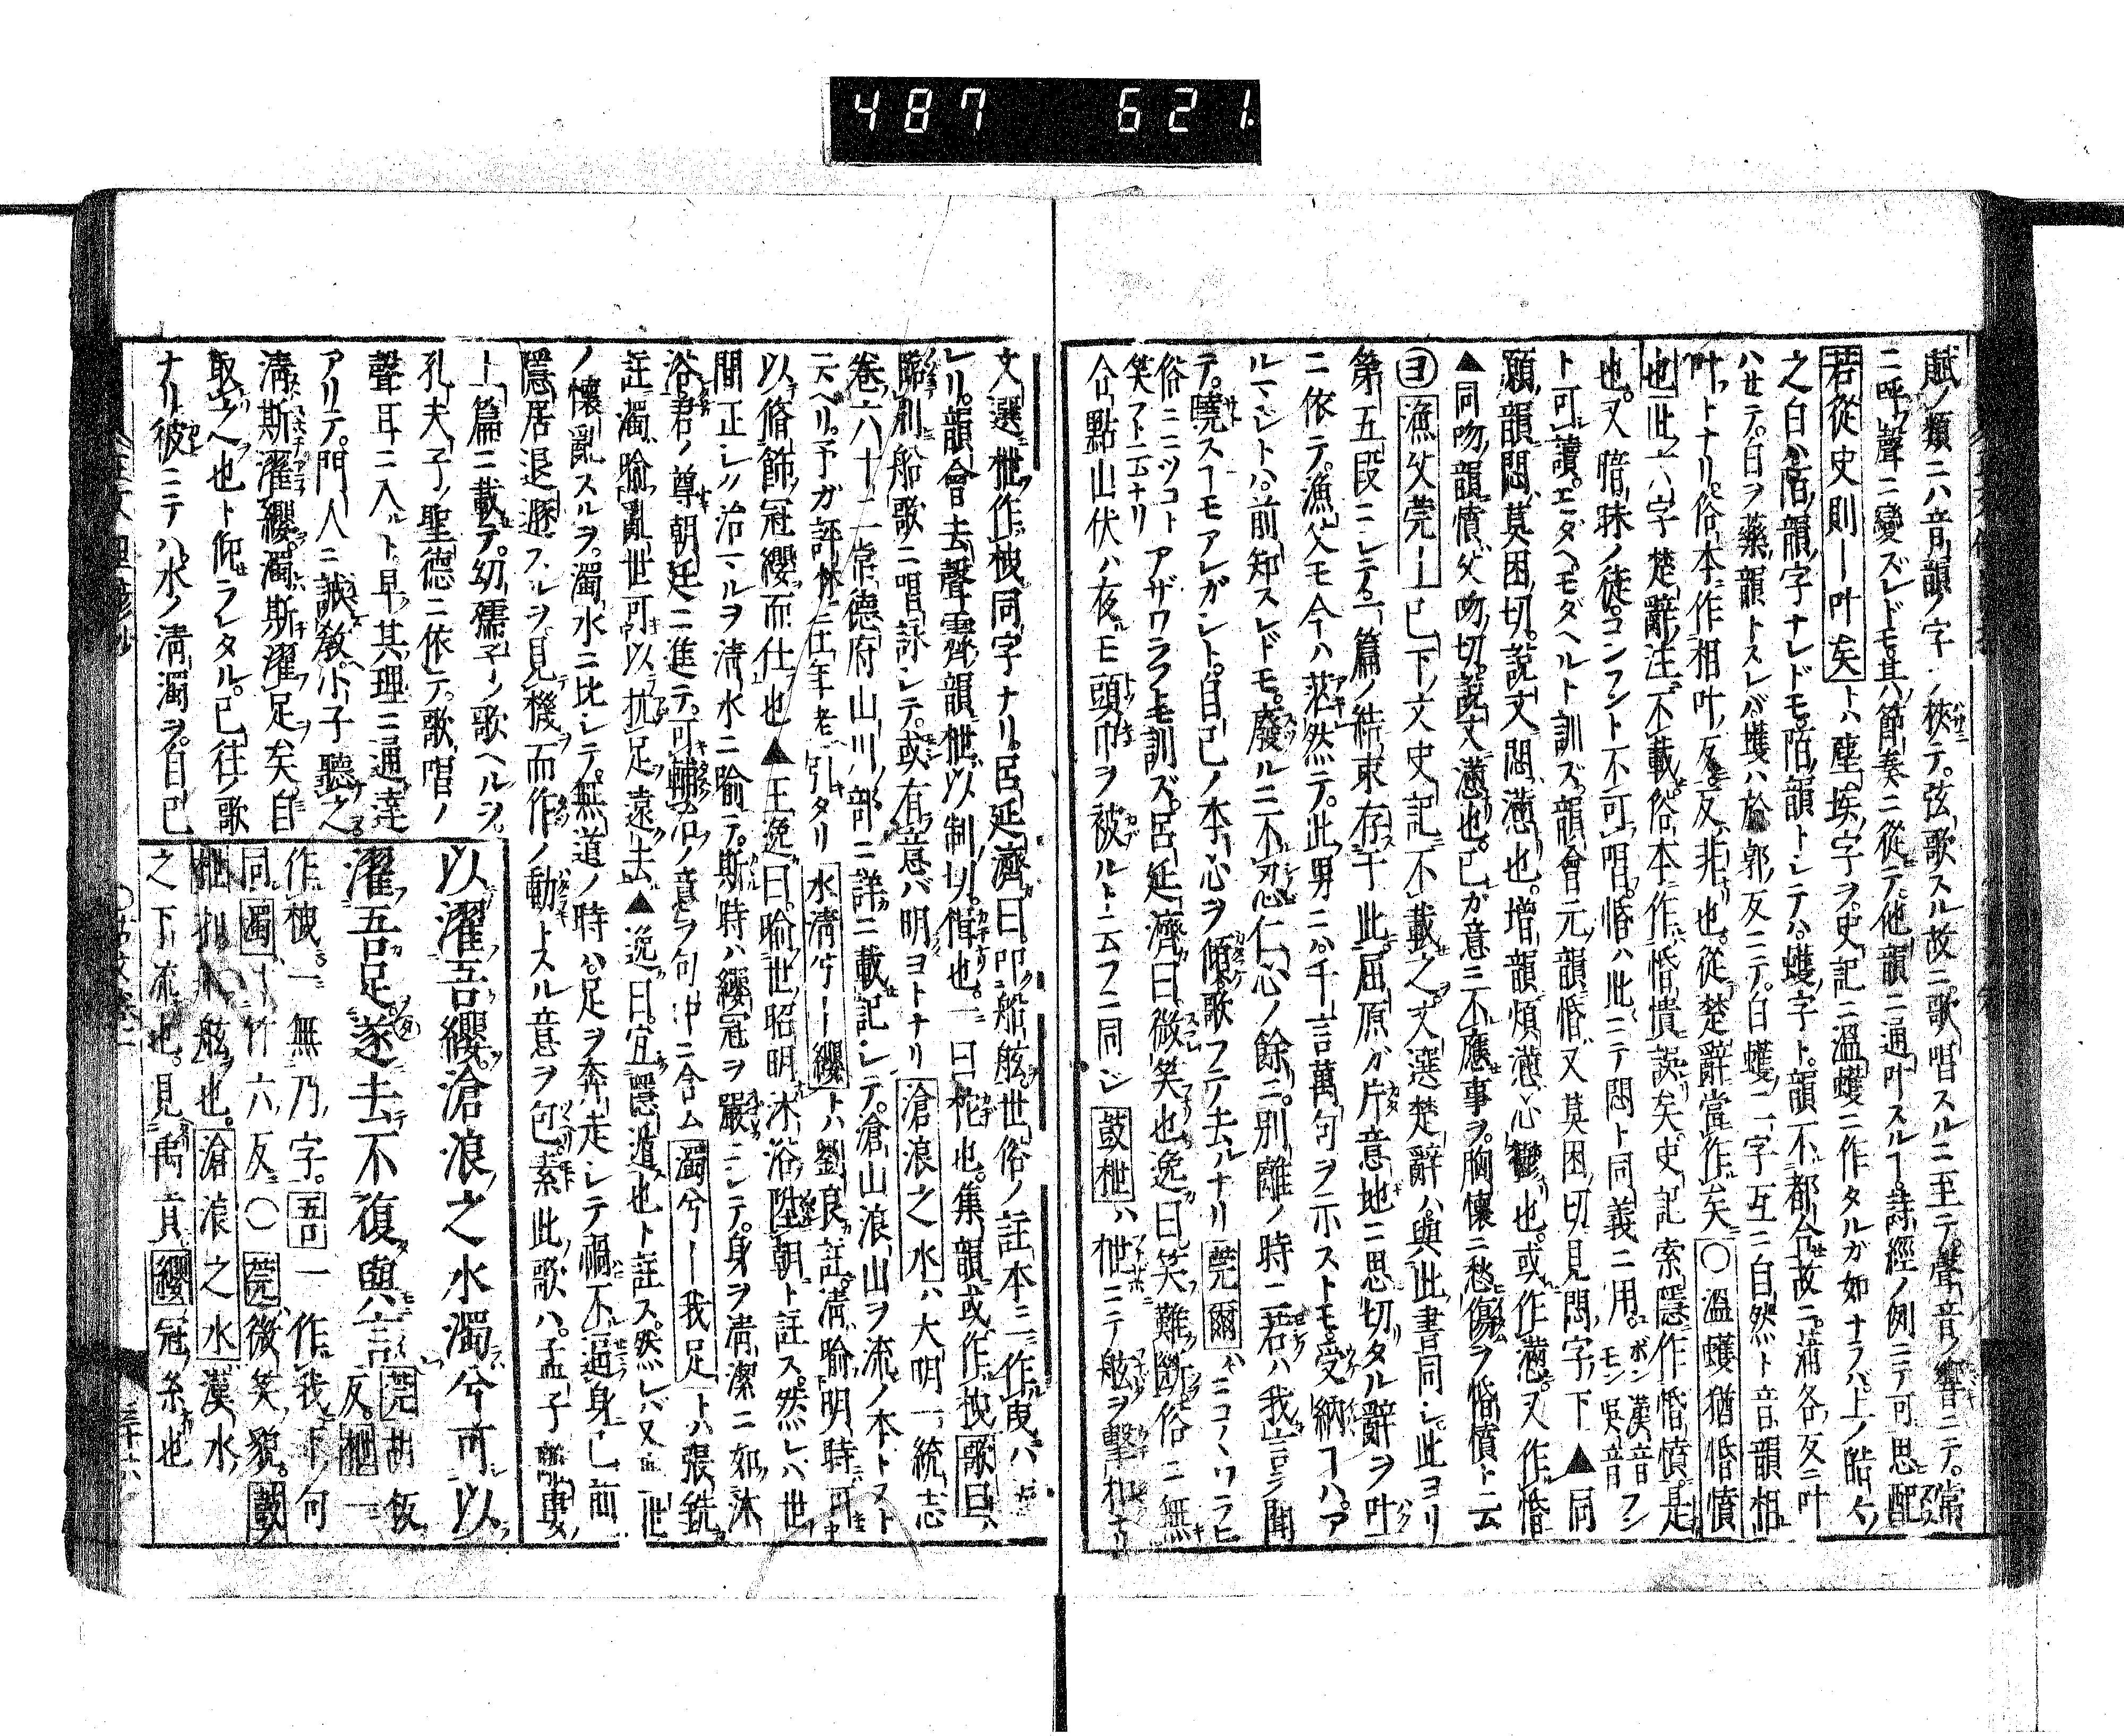 487 621
賦ノ類ニハ音韻ノ字ヲ挾テ。弦歌スル故ニ。歌唱スルニ至テ。聲音ノ響ニテ。常
ニ呼聲ニ變ズレドモ。其ノ節奏ニ從テ。他韻ニ通叶スルコ。詩經ノ例ニテ可思配
若從史則―叶矣トハ。塵埃ノ字ヲ。史記ニ温蠖ニ作タルガ如ナラバ。上ノ皓々
之白ハ。陌韻ノ字ナレドモ。陌韻トシテハ。蠖ノ字ト。韻不都合故ニ。蒲各ノ反ニ叶
ハセテ。白ヲ藥韻トスレバ。蠖ハ於郭ノ反ニテ。白蠖ノ二字互ニ自然ト音韻相
叶トナリ。俗本作相叶ノ反ニ反ニ非也。從楚辭當作矣○温蠖猶惛憒
也此六字楚辭ノ注不載。俗本作惛憒誤矣。史記索隱作惛憤是
也。又暗昧ノ徒。コンフント不可唱。惛ハ此ニテ悶ト同義ニ用。ボン漢音フン モン呉音
ト可讀。モダヘモダヘルト訓ズ。韻會元韻惛又莫困ノ切見悶ノ字ノ下▲同
願韻悶莫困ノ切。説文悶懣也。増韻煩懣心鬱也。或作懣又作惛
▲同吻韻憤父吻ノ切。説文懣也。己ガ意ニ不應事ヲ。胸懷ニ愁傷ヲ惛憤ト云
ヨ 漁父莞―已下ノ文史記不載之文選楚辭ハ。與此書同シ此ヨリ
第五段ニシテ。一篇ノ結束存于此。屈原ガ片意地ニ思切タル辭ヲ叶
ニ依テ。漁父モ今ハ茫然テ。此男ニハ千言萬句ヲ示ストモ。受納コハ。ア
ルマシトハ。前知スレドモ。廢ルニ不忍仁心ノ餘ニ。別離ノ時ニ君ハ我言ヲ聞
テ。曉スコモアレガシト。自己ノ本心ヲ傾歌フテ去ルナリ 莞爾ハニコ〱ワラヒ
俗ニニツコトアザワラフトモ訓ズ。呂延濟曰微笑也逸曰。笑難斷俗ニ無
笑フト云ナリ
合點山伏ハ夜モ頭巾ヲ被ルト云フニ同ジ 鼓枻ハ枻ニテ舷ヲ擊
文選枻作栧同字ナリ。呂延濟曰。叩船舷。世俗ノ註本ニ作曳ハ
レリ。韻會去聲霽韻枻以制切。楫也。一曰柁也。集韻或作栧 歌曰ハ
臨別船歌ニ唱詠シテ。或有意バ明ヨトナリ 滄浪之水ハ大明一統志
卷六十二常德府山川ノ部ニ詳ニ載記シテ。滄山浪山ヲ流ノ本トスト
云ヘリ。予ガ 引タリ 水淸兮―纓トハ劉良註。淸喩明時可
以脩飾冠纓而仕也▲王逸曰。喩世昭明沐浴陞朝ト註ス。然レバ世
間正シク治マルヲ淸水ニ喩テ。斯時ハ纓冠ヲ嚴ニシテ。身ヲ淸潔ニ如沐
浴君ノ尊朝廷ニ進テ。可輔治ノ意ヲ句中ニ含ム 濁兮―我足トハ張銑
註濁喩亂世可以抗足遠去▲逸曰。宜隱遁也ト註ス。然レバ又世
ノ懷亂スルヲ。濁水ニ比シテ。無道ノ時ハ。足ヲ奔走シテ禍不逼身已前
隱居退遯スルヲ。見機而作ノ動トスル意ヲ包。素此歌ハ。孟子離婁
上篇ニ載テ。幼孺子ノ歌ヘルヲ。
孔夫子ノ聖德ニ依テ。歌唱ノ
聲耳ニ入ト。早其理ニ通達
アリテ。門人ニ誠敎ヘ小子聽之
淸斯濯纓。濁斯濯足矣。自
取之也ト仰ラレタル。已往ノ歌
ナリ彼ニテハ水ノ淸濁ヲ。自己
以濯吾纓。滄浪之水濁兮可以
濯吾足。遂去不復與言 莞胡板反。枻一
作栧。一無乃字。吾一作我下句
同。濁 竹六反○莞微笑貌。鼓
枻扣船舷也。滄浪之水漢水
之下流也。見禹貢纓冠系也